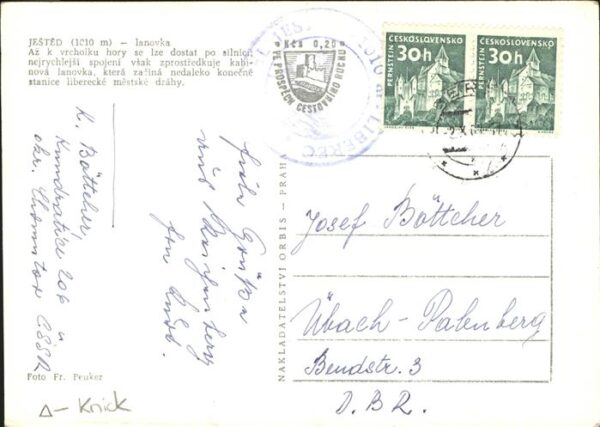 JEŠTĚD (1010 m) — lanovka
Až k vrcholku hory se lze dostat po silnici,
nejrychlejší spojení však zprostředkuje kabi-
nová lanovka, která začíná nedaleko konečné
stanice liberecké městské dráhy.
Kčs 0,20
VE PROSPĚCH CESTOVNÍHO RUCHU
JEŠTĚD 1010 m. LIBEREC
PERNŠTEJN
ČESKOSLOVENSKO
30h
PERNŠTEJN
ČESKOSLOVENSKO
30h
K. Böttcher,
Kundratice 206
okr. Chomutov ČSSR
Viele Grüße
aus Reichenberg
NAKLADATELSTVÍ ORBIS — PRAH
Josef Böttcher
Übach-Palenberg
Bendstr. 3
D.B.R.
Foto Fr. Peuker
Δ— Knick